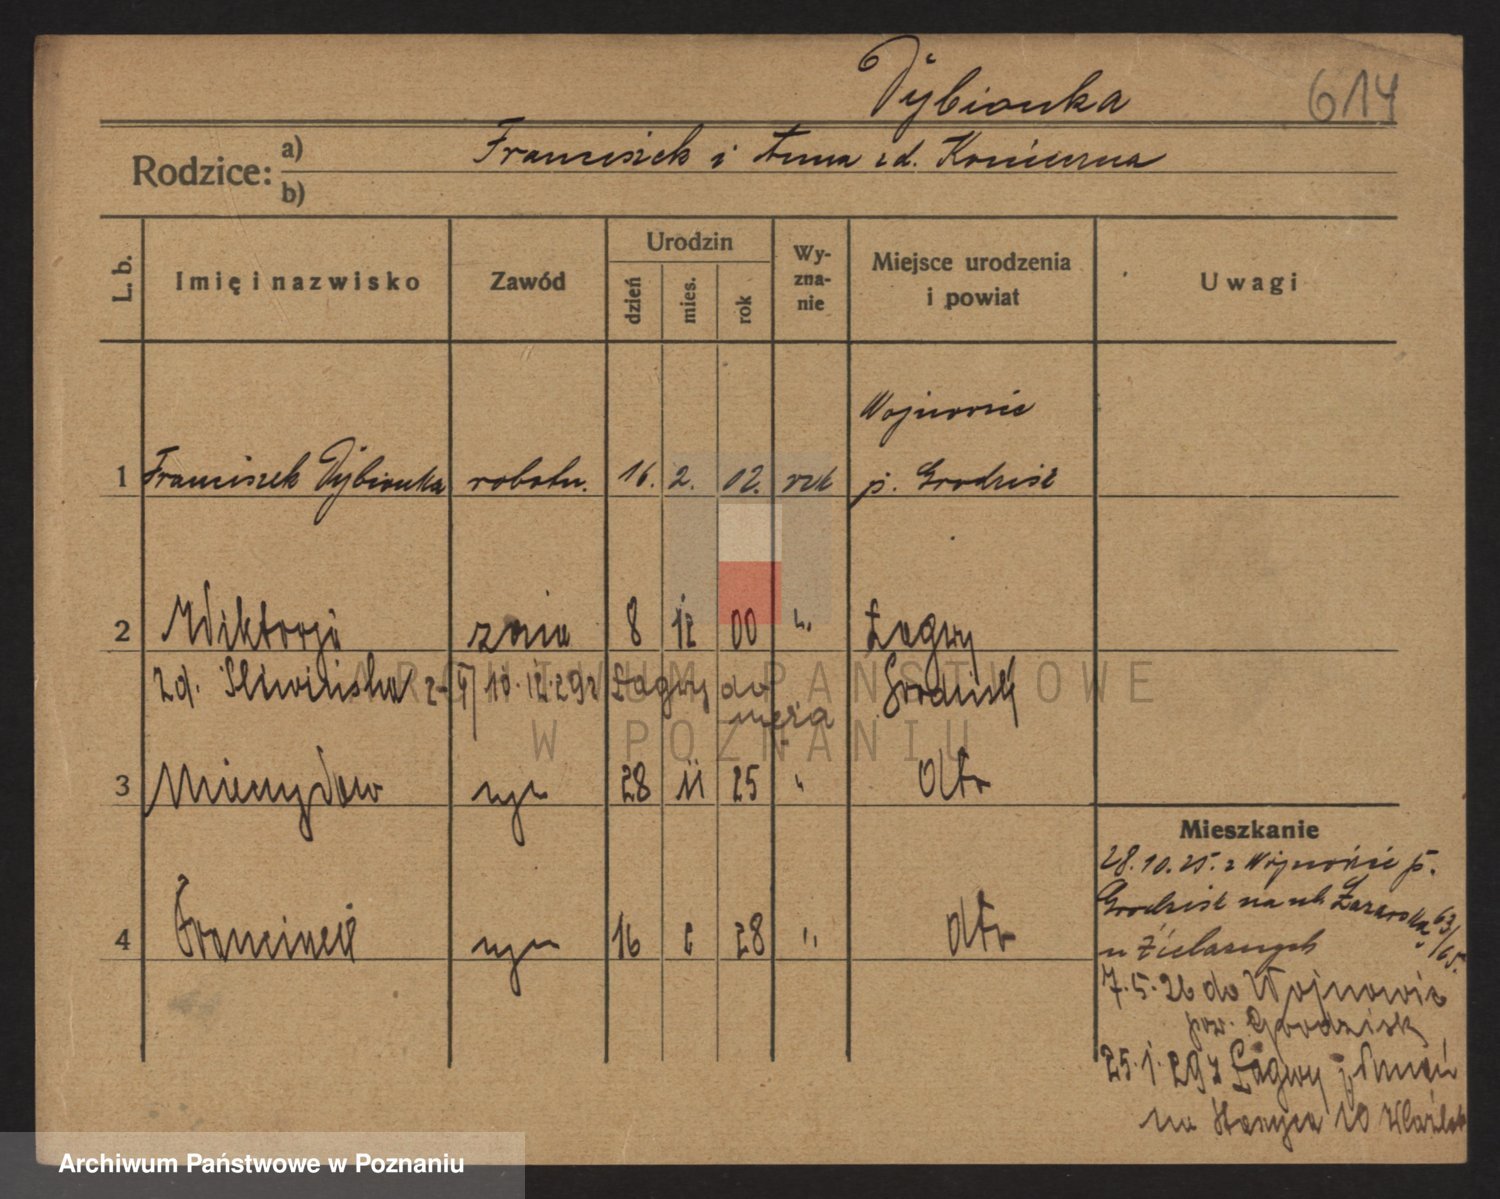 Dybionka 614
Rodzice: a) Franciszek i Anna zd.
b)
L. b. Imię i nazwisko Zawód Urodzin Wyznanie Miejsce urodzenia i powiat Uwagi
dzień mies. rok
Wojnowic
1 Franciszek Dybionka robotn. 16. 2. 02. rzk p. Grodzisk
2 Wiktorja żona 8 12 00 " Łagwy
zd. 10.12.29 z Łagwy do Grodzisk
męża
3 Mieczysław syn 28 11 25 " dtr
4 Franciszek syn 16 2 28 " dtr
Mieszkanie
28.10.25. z Wojnowic p.
Grodzisk na ul. Łazarska 63/65.
u
7.5.26 do Wojnowic
pow. Grodzisk
25.1.29 z Łagwy p.
na 10
ARCHIWUM PAŃSTWOWE
W POZNANIU
Archiwum Państwowe w Poznaniu